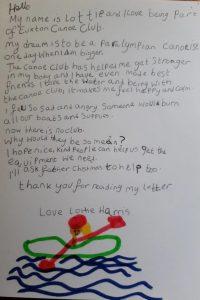 Hello
My name is Lottie and I love being Part
of Euxton Canoe Club.
my dream is to be a Paralympian Canoeist
one day when I am bigger.
The Canoe Club has helped me get Stronger
in my body and I have even made best
friends I love the water and being with
the canoe club, it makes me feel happy and calm.
I feel So Sad and angry Someone would burn
all our boats and Supplies.
now there is no club.
Why would they be So mean?
I hope nice, kind People can help us get the
equipment we need.
I'll ask father Christmas to help too.
thank you for reading my letter
Love Lottie Harris